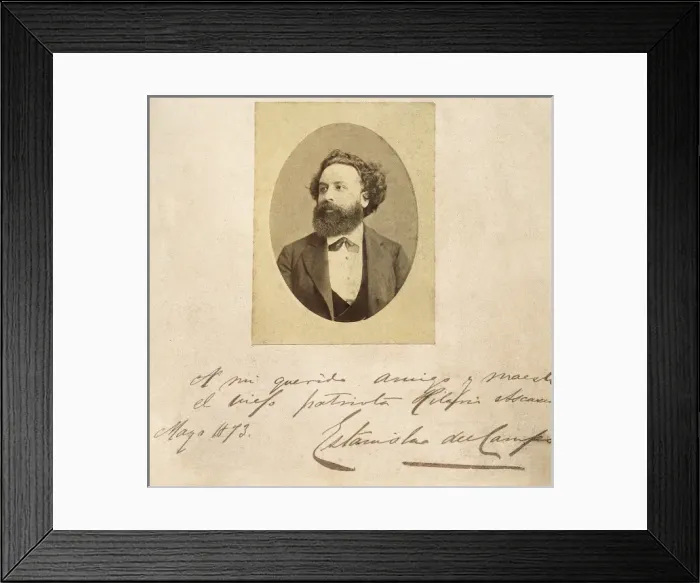 A mi querido amigo y maest
el viejo patriota Hilario Ascasu
Mayo 1873.
Estanislao del Campo